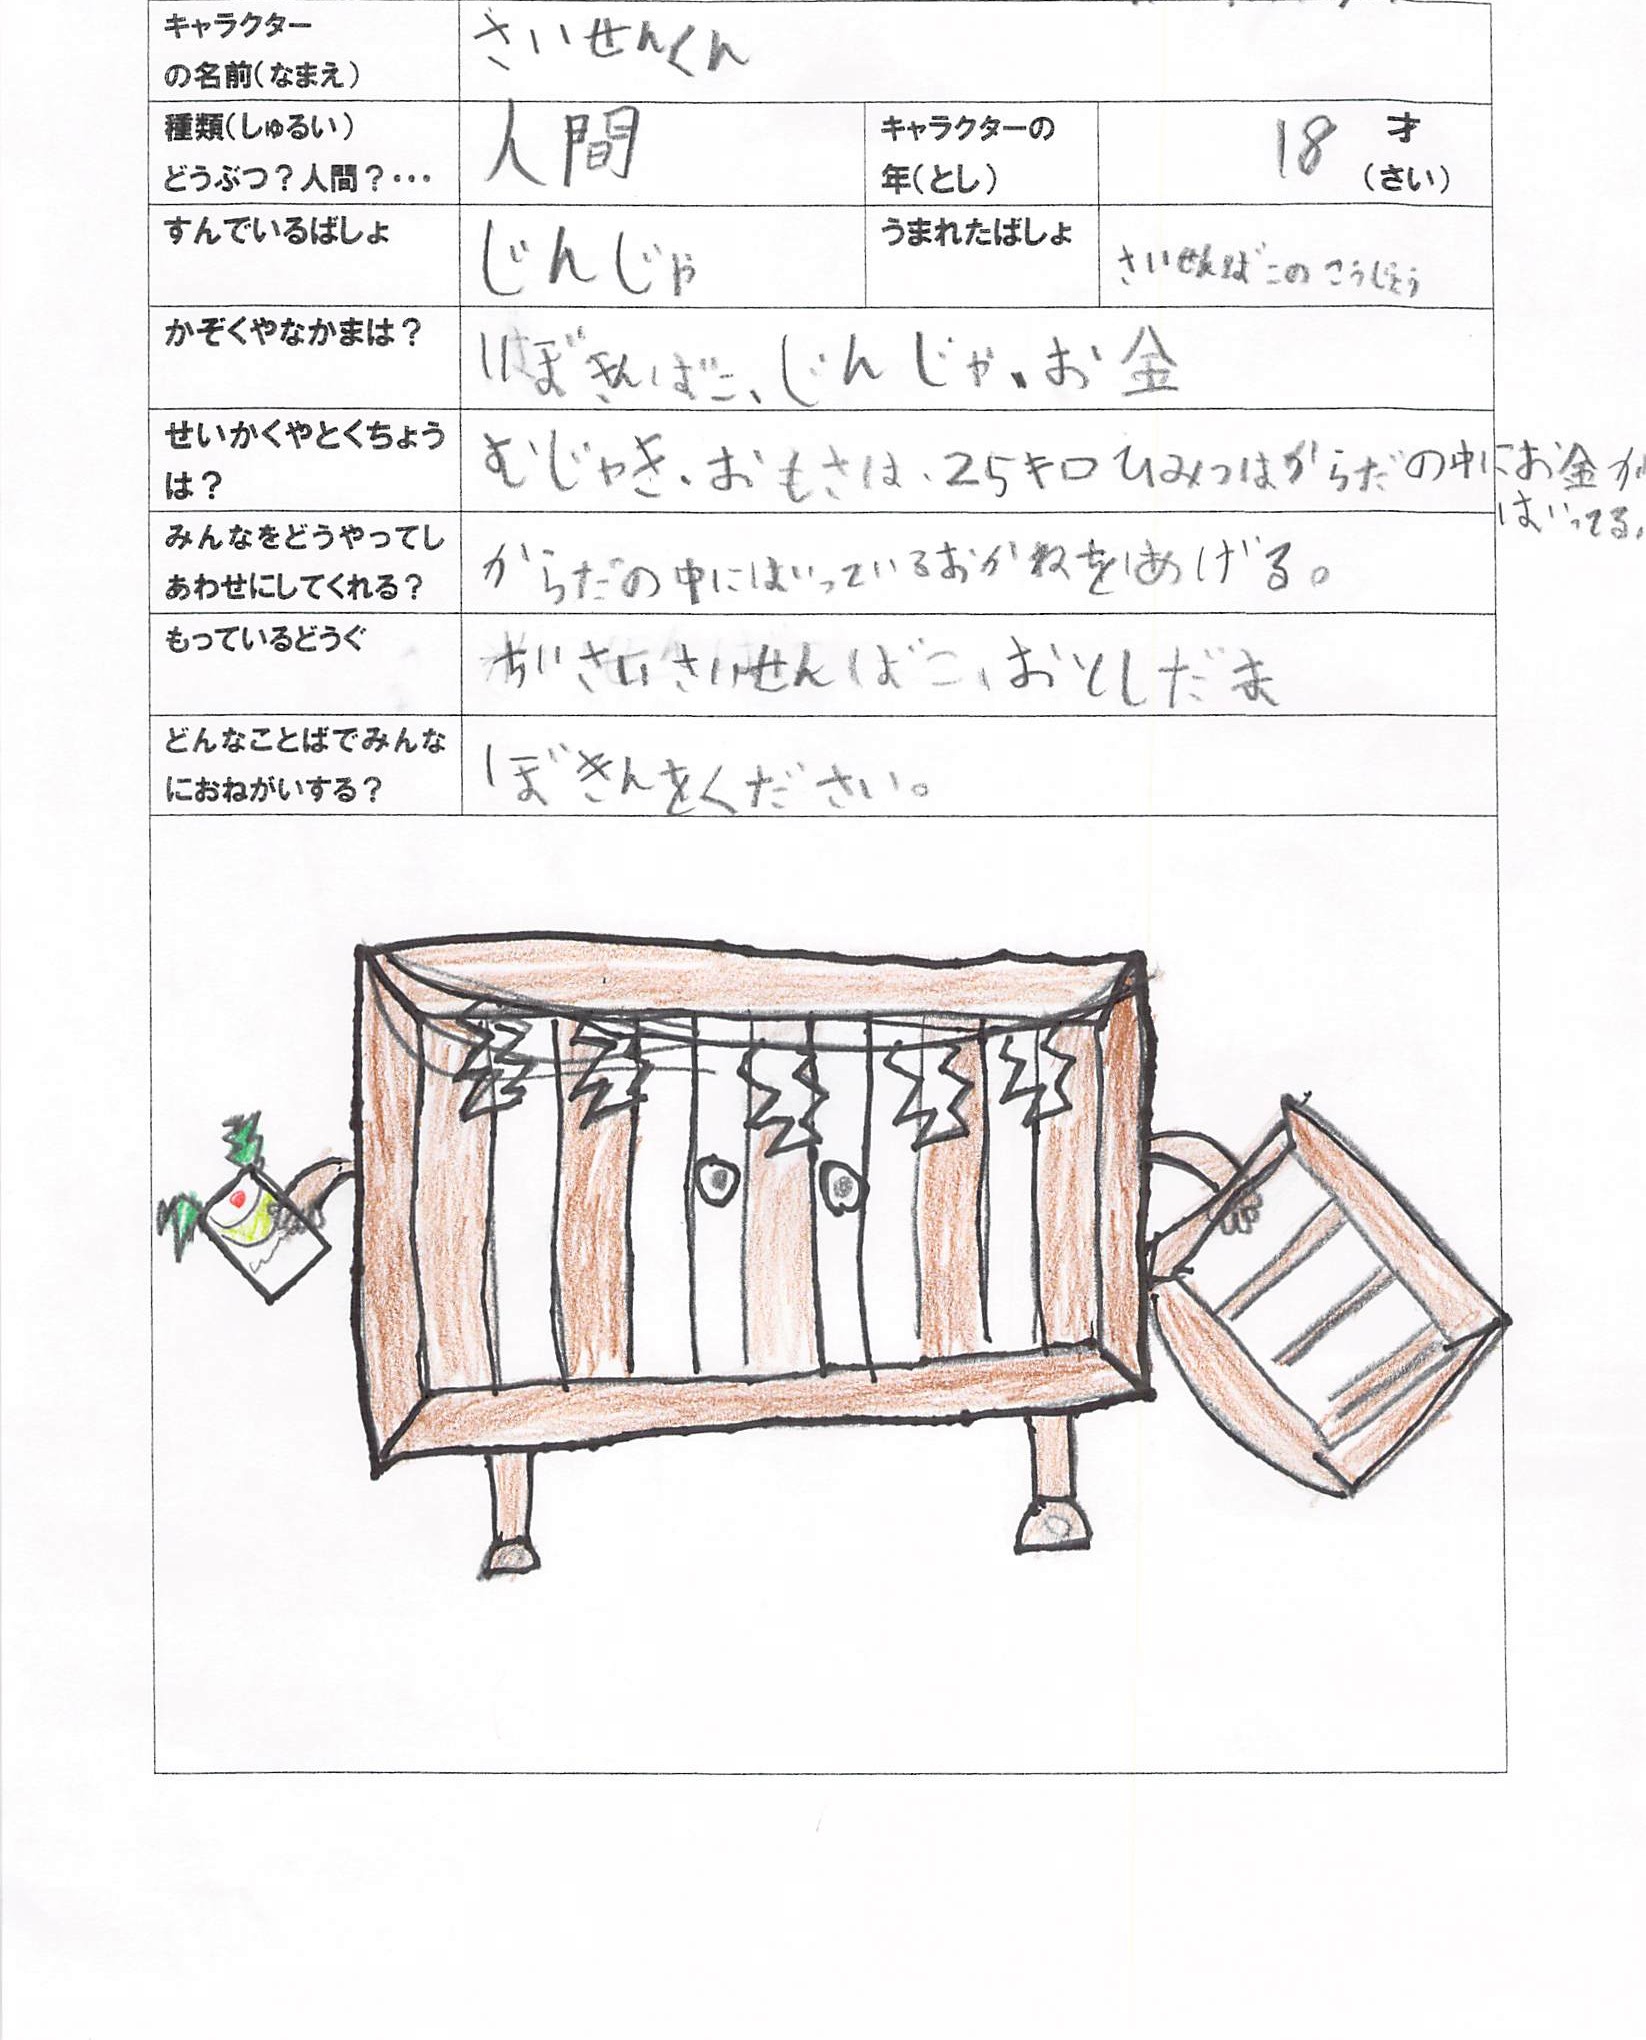 キャラクター
の名前(なまえ)
さいせんくん
種類(しゅるい)
どうぶつ?人間?・・・
人間
キャラクターの
年(とし)
18 才
(さい)
すんでいるばしょ
じんじゃ
うまれたばしょ
さいせんばこのこうじょう
かぞくやなかまは?
ぼきんばこ、じんじゃ、お金
せいかくやとくちょう
は?
むじゃき、おもさは、25キロ ひみつはからだの中にお金が
はいってる。
みんなをどうやってし
あわせにしてくれる?
からだの中にはいっているおかねをあげる。
もっているどうぐ
ちいさいさいせんばこ、おとしだま
どんなことばでみんな
におねがいする?
ぼきんをください。